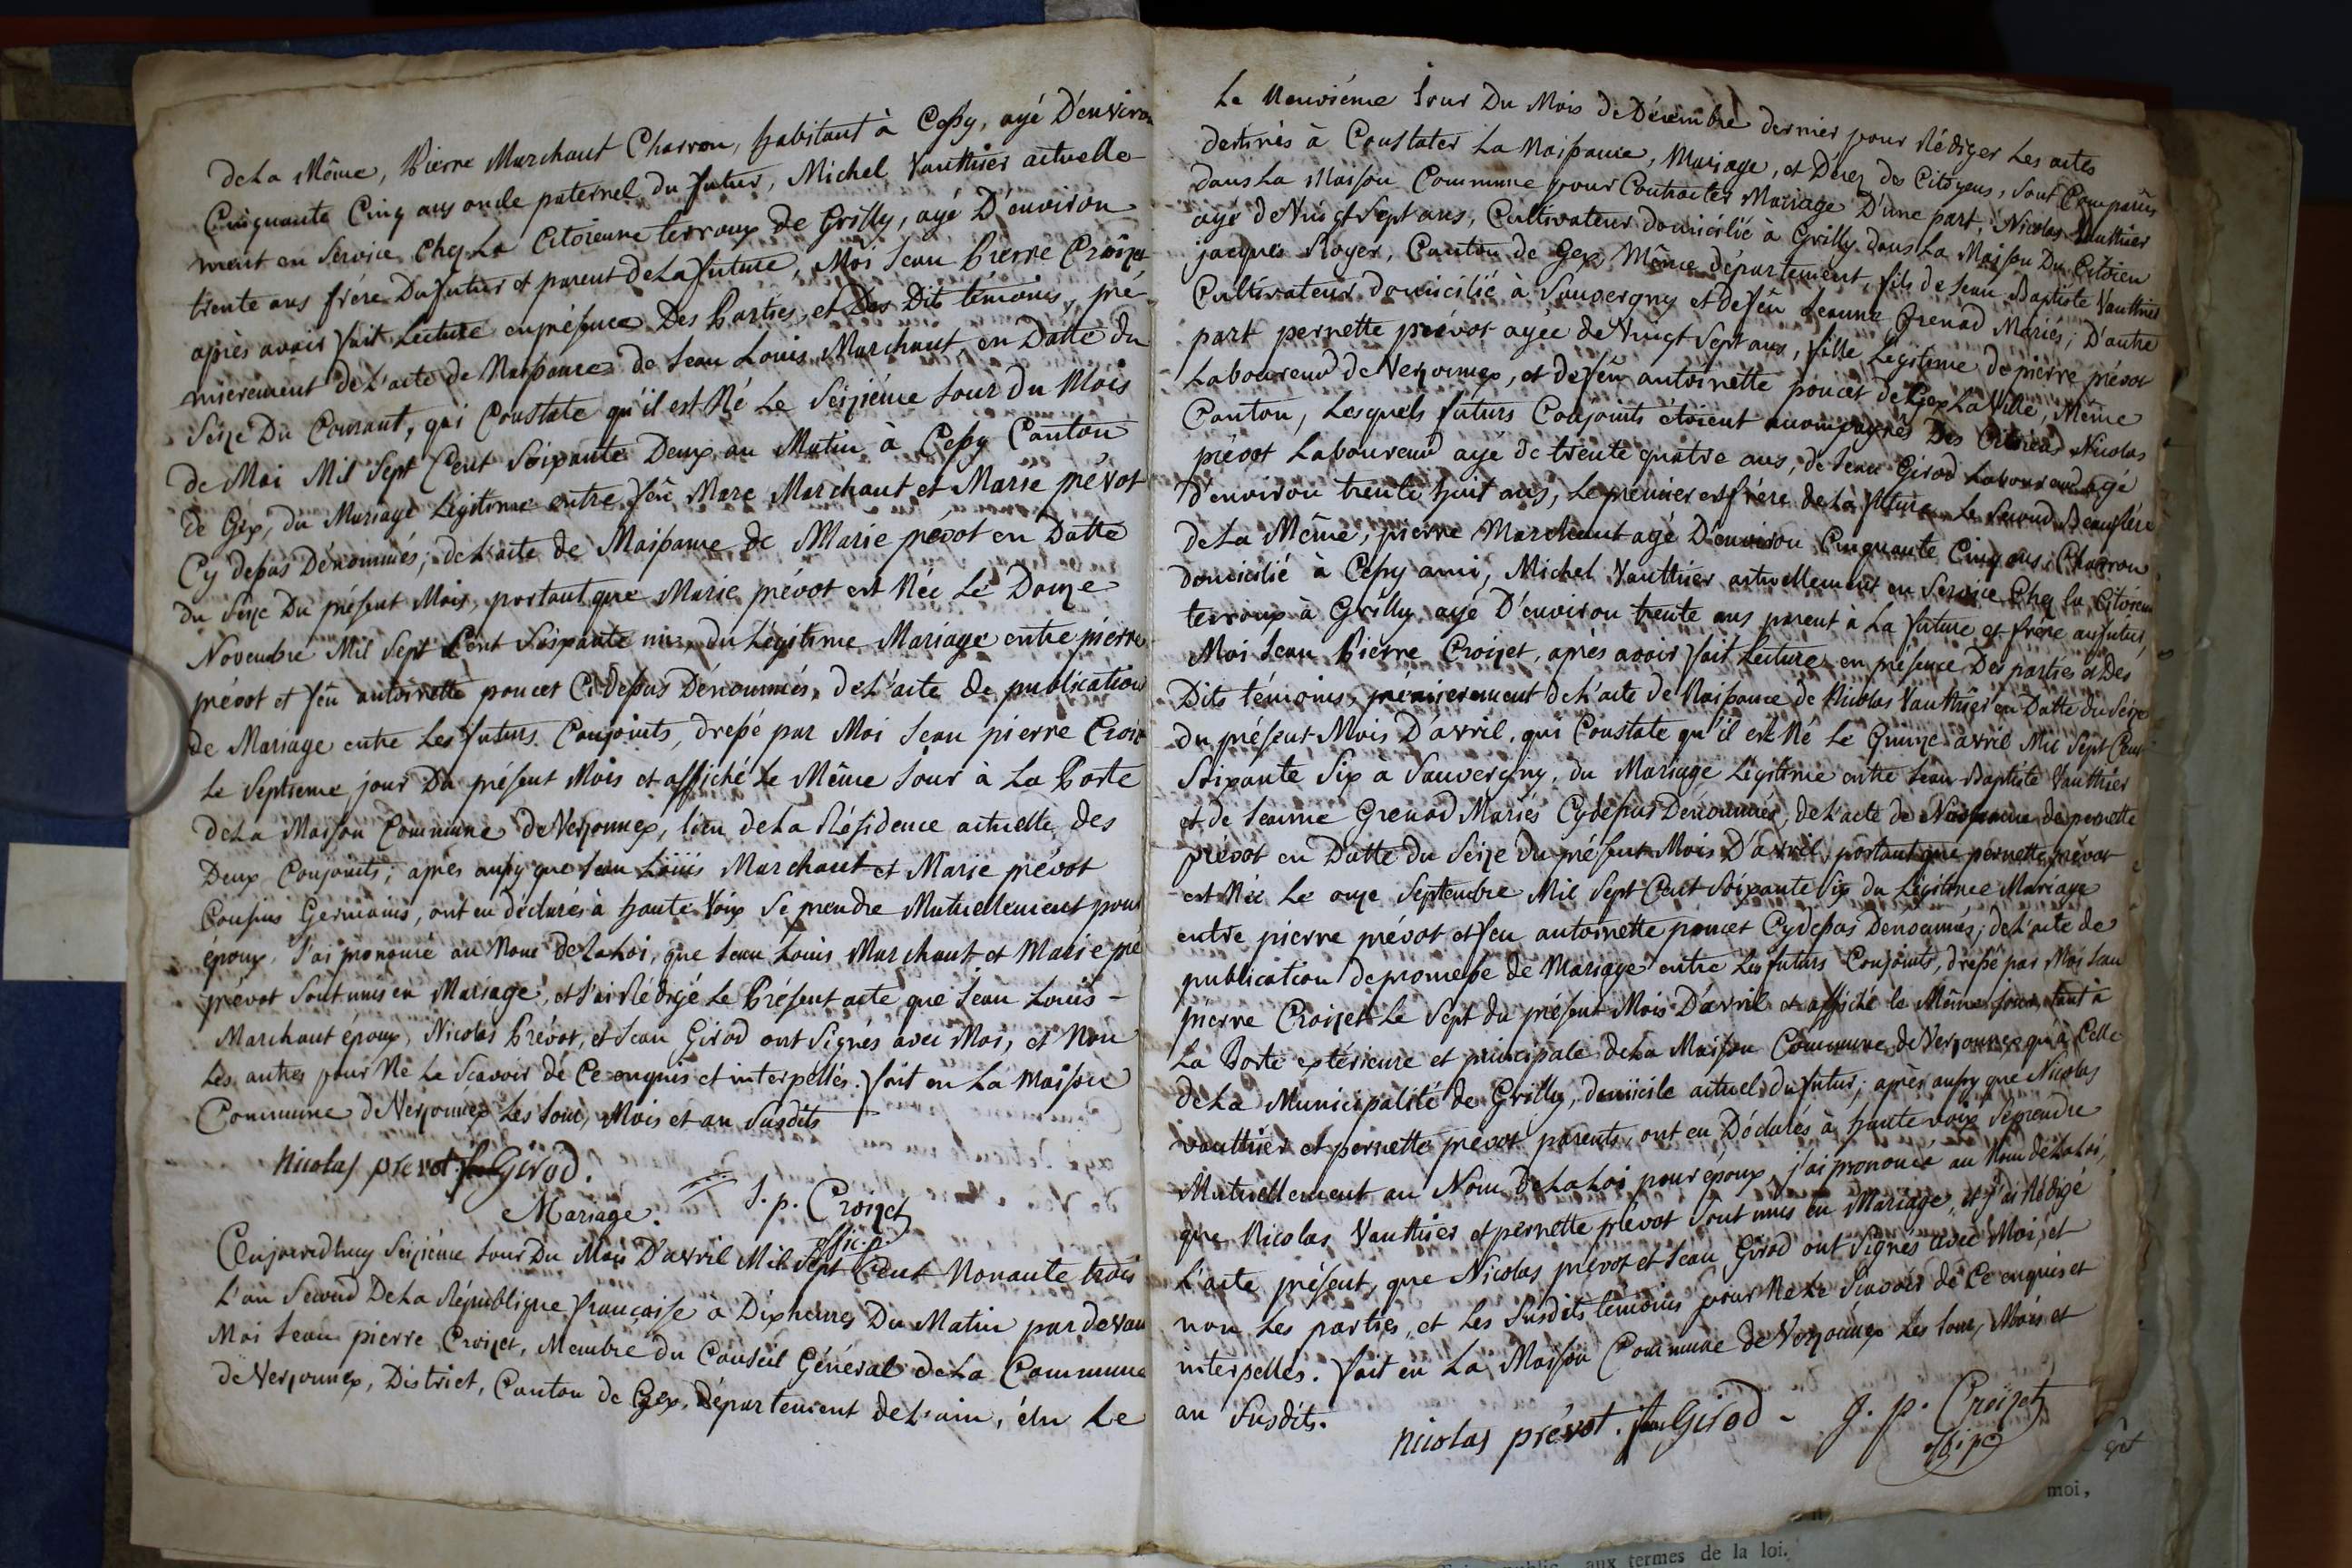 de La Même, Pierre Marchant Charron, habitant à Cessy, agé D'environ
Cinquante Cinq ans oncle paternel du futur, Michel Vautthier actuelle-
ment en Service Chez La Citoienne terroux de Grilly, agé D'environ
trente ans frére Du futur et parent de La future, Moi Jean Pierre Croizet
après avoir fait Lecture en présence Des Parties, et Des Dits témoins, pré
mierement de L'acte de Naissance de Jean Louis Marchant en Datte du
Seize Du Courant, qui Constate qu'il est Né Le Seiziéme Jour du Mois
de Mai Mil Sept Cent Soixante Deux au Matin à Cessy Canton
de Gex, du Mariage Légitime entre feu Marc Marchant et Marie prévot
Cy dessus Dénommés; de L'acte de Naissance de Marie prévot en Datte
du Seize Du présent Mois, portant que Marie prévot est Née Le Douze
Novembre Mil Sept Cent Soixante du Légitime Mariage entre pierre
prévot et feu antoinette poncet Ci dessus Dénommés, de L'acte de publication
de Mariage entre Les futurs Conjoints, dressé par Moi Jean pierre Croiz
Le Septieme jour Du présent Mois et affiché Le Même Jour à La Porte
de La Maison Commune de Verzonnex, lieu de La Résidence actuelle des
Deux Conjoints; après aussy que Jean Loüis Marchant et Marie prévot
Cousins Germains, ont eu déclarés à haute Voix Se prendre Mutuellement pour
époux, J'ai prononcé au Nom de La Loi, que Jean Louis Marchant et Marie pré
prévot Sont unis en Mariage, et J'ai Rédigé Le Présent acte que Jean Louis -
Marchant époux, Nicolas Prévot, et Jean Girod ont Signés avec Moi, et Non
Les autres pour Ne Le Scavoir de Ce enquis et interpellés. fait en La Maison
Commune de Verzonnex Les Jour, Mois et an Susdits
Nicolas prevot. Jean Girod.
J. p. Croizet
offic. p.
Mariage.
Cejourdhuy Seiziéme Jour Du Mois D'avril Mil Sept Cent Nonante trois
L'an Second De La République française à Dix heures Du Matin par devan
Moi Jean pierre Croizet, Membre du Conseil Général de La Commune
de Verzonnex, District, Canton de Gex, Département de L'ain, élu Le
Le Neuviéme Jour Du Mois de Décembre dernier pour Rédiger Les actes
destinés à Constater La Naissance, Mariage, et Décez des Citoyens, Sont Comparûs
dans La Maison Commune pour Contracter Mariage D'une part, Nicolas Vautthier
agé de Vingt Sept ans, Cultivateur domicilié à Grilly dans La Maison Du Citoien
jacques Royer, Canton de Gex, Même département, fils de Jean Baptiste Vautthier
Cultivateur domicilié à Sauvergny et de feu Jeanne Grenad Mariés; D'autre
part pernette prévot agée de Vingt Sept ans, fille Légitime de pierre prévot
Laboureur de Verzonnex, et de feu antoinette poncet de Gex La Ville, Même
Canton, Lesquels futurs Conjoints étoient accompagnés Des Citoiens Nicolas
prévot Laboureur agé de trente quatre ans, de Jean Girod Laboureur agé
d'environ trente huit ans, Le premier est frére de La future Le Second Beaufrére
de La Même, pierre Marchant agé D'environ Cinquante Cinq ans, Charron
domicilié à Cessy ami, Michel Vautthier actuellement en Service Chez la Citoienne
terroux à Grilly agé D'environ trente ans parent à La future et frére au futur,
Moi Jean Pierre Croizet, après avoir fait Lecture en présence Des parties et Des
Dits témoins, prémierement de L'acte de Naissance de Nicolas Vautthier en Datte du Seize
du présent Mois D'avril, qui Constate qu'il est Né Le Quinze avril Mil Sept Cent
Soixante Six à Sauvergny, du Mariage Légitime entre Jean Baptiste Vautthier
et de Jeanne Grenad Mariés Cy dessus Dénommés, de L'acte de Naissance de pernette
prévot en Datte du Seize du présent Mois D'avril, portant que pernette prévot
est Née Le onze Septembre Mil Sept Cent Soixante Six du Légitime Mariage
entre pierre prévot et feu antoinette poncet Cy dessus Dénommés; de L'acte de
publication de promesse de Mariage entre Les futurs Conjoints, dressé par Moi Jean
pierre Croizet Le Sept du présent Mois D'avril et affiché le Même jour, tant à
La Porte extérieure et principale de La Maison Commune de Verzonnex qu'à Celle
de La Municipalité de Grilly, domicile actuel du futur; après aussy que Nicolas
vautthier et pernette prévot parents, ont eu Déclarés à haute voix Se prendre
Mutuellement au Nom de La Loi pour époux, j'ai prononcé au Nom de La Loi,
que Nicolas Vautthier et pernette prévot Sont unis en Mariage, et J'ai Rédigé
L'acte présent, que Nicolas prévot et Jean Girod ont Signés avec Moi, et
non Les parties, et Les Susdits témoins pour Ne Le Scavoir de Ce enquis et
interpellés. fait en La Maison Commune de Verzonnex Les Jour, Mois et
an Susdits.
Nicolas prévot. Jean Girod - J. p. Croizet
moi,
aux termes de la loi.